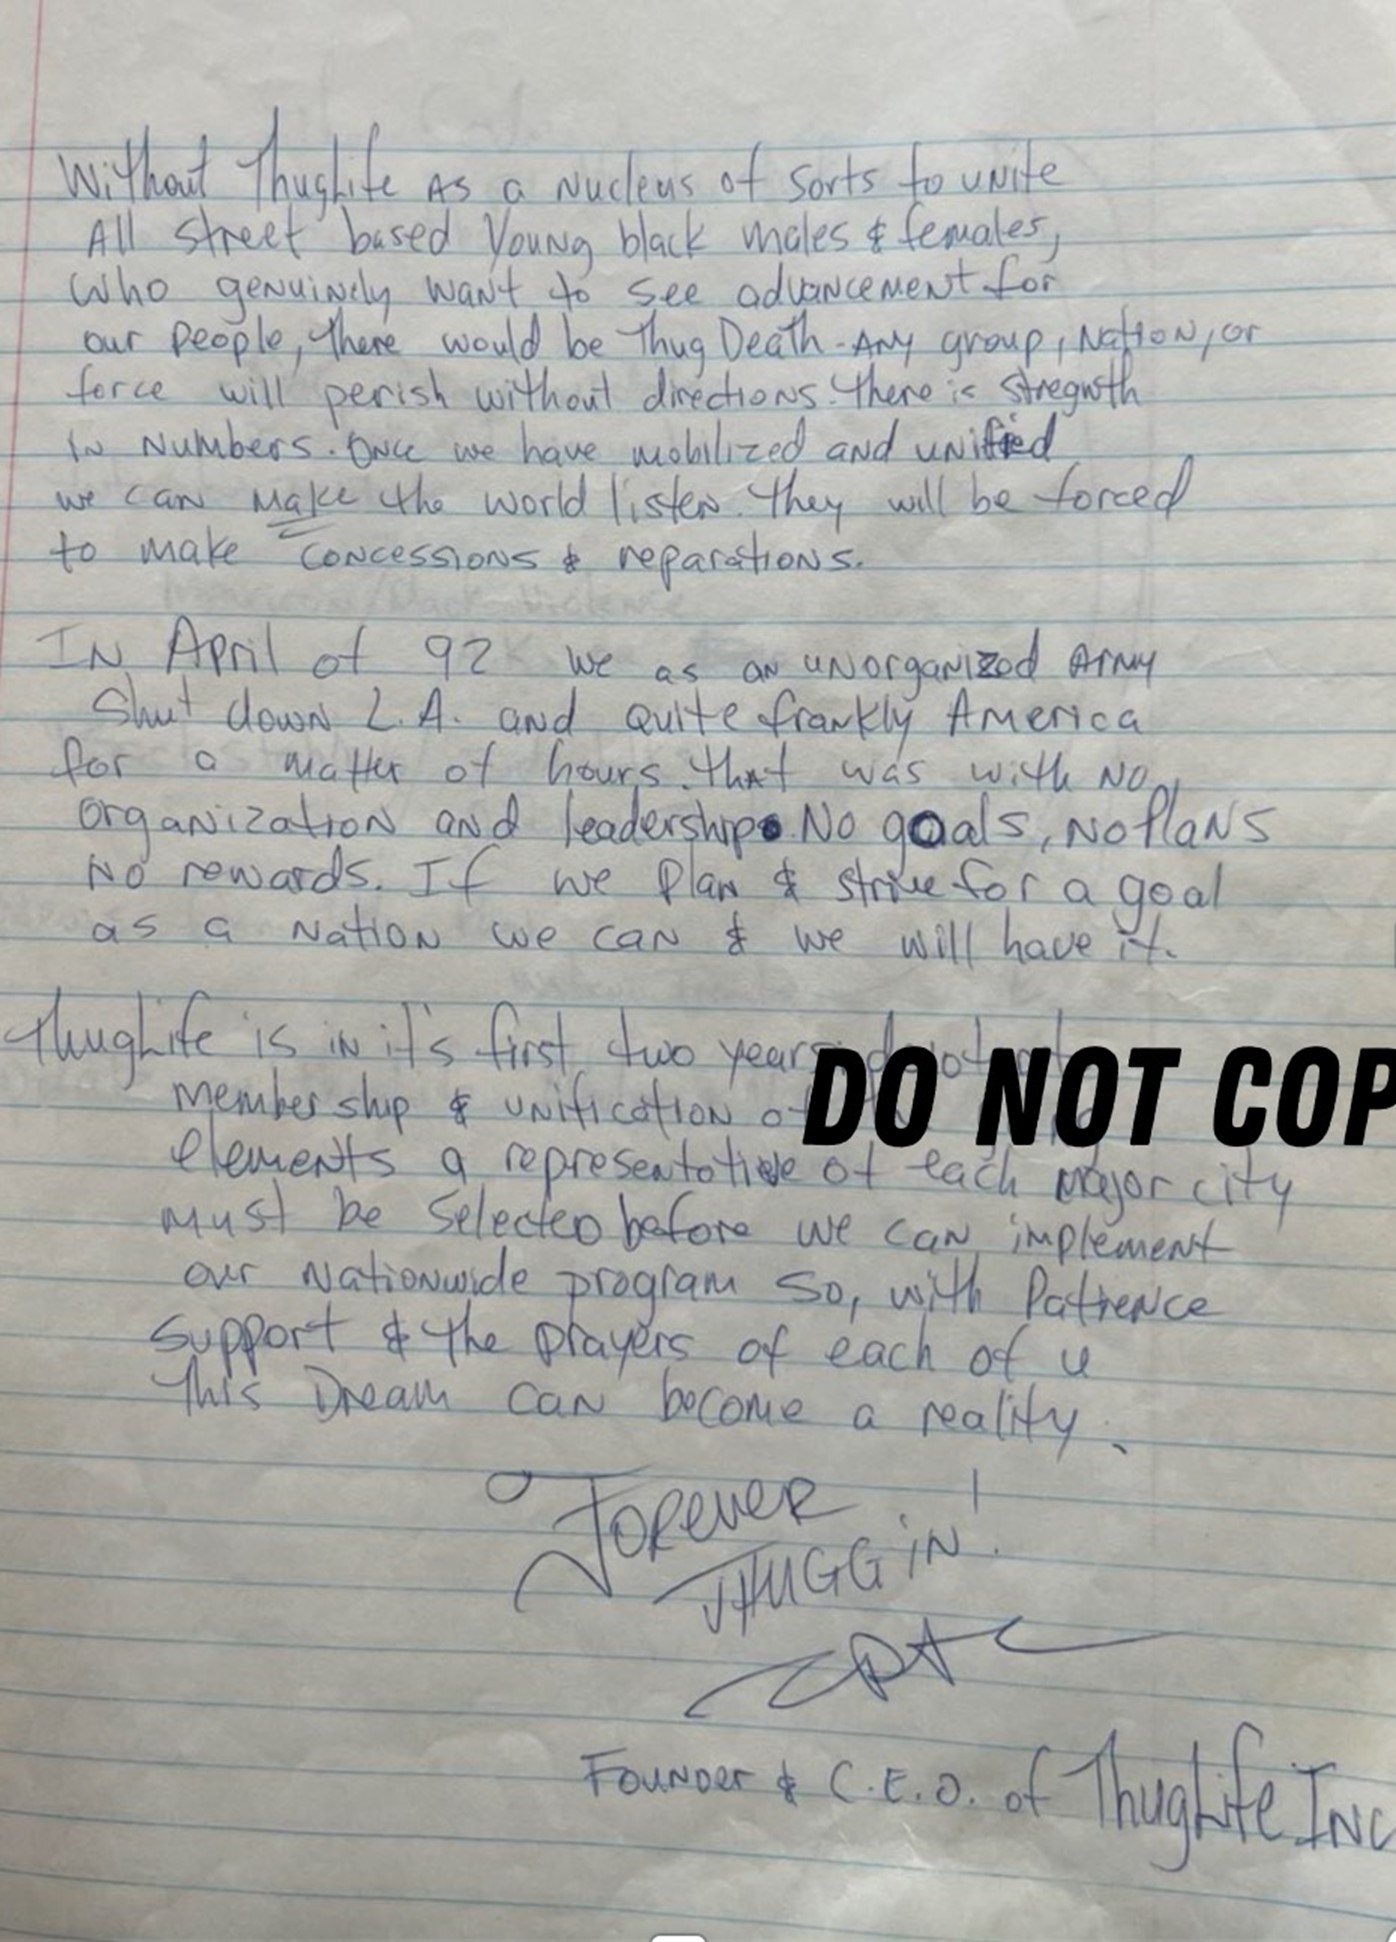 Without ThugLife As a Nucleus of sorts to unite
All street based Young black males & females,
Who genuinely want to see advancement for
our people, there would be Thug Death. Any group, Nation, or
force will perish without directions. there is stregnth
in Numbers. Once we have mobilized and unified
we can make the world listen. they will be forced
to make concessions & reparations.
In April of 92 we as an unorganized Army
Shut down L.A. and quite frankly America
for a matter of hours. that was with no
organization and leadership. No goals, no plans
No rewards. If we plan & strive for a goal
as a Nation we can & we will have it.
ThugLife is in it's first two years
DO NOT COP
membership & unification
elements a representative of each major city
must be selected before we can implement
our Nationwide program so, with Patience
support & the prayers of each of u
this Dream can become a reality.
Forever
THUGGIN!
Founder & C.E.O. of ThugLife Inc